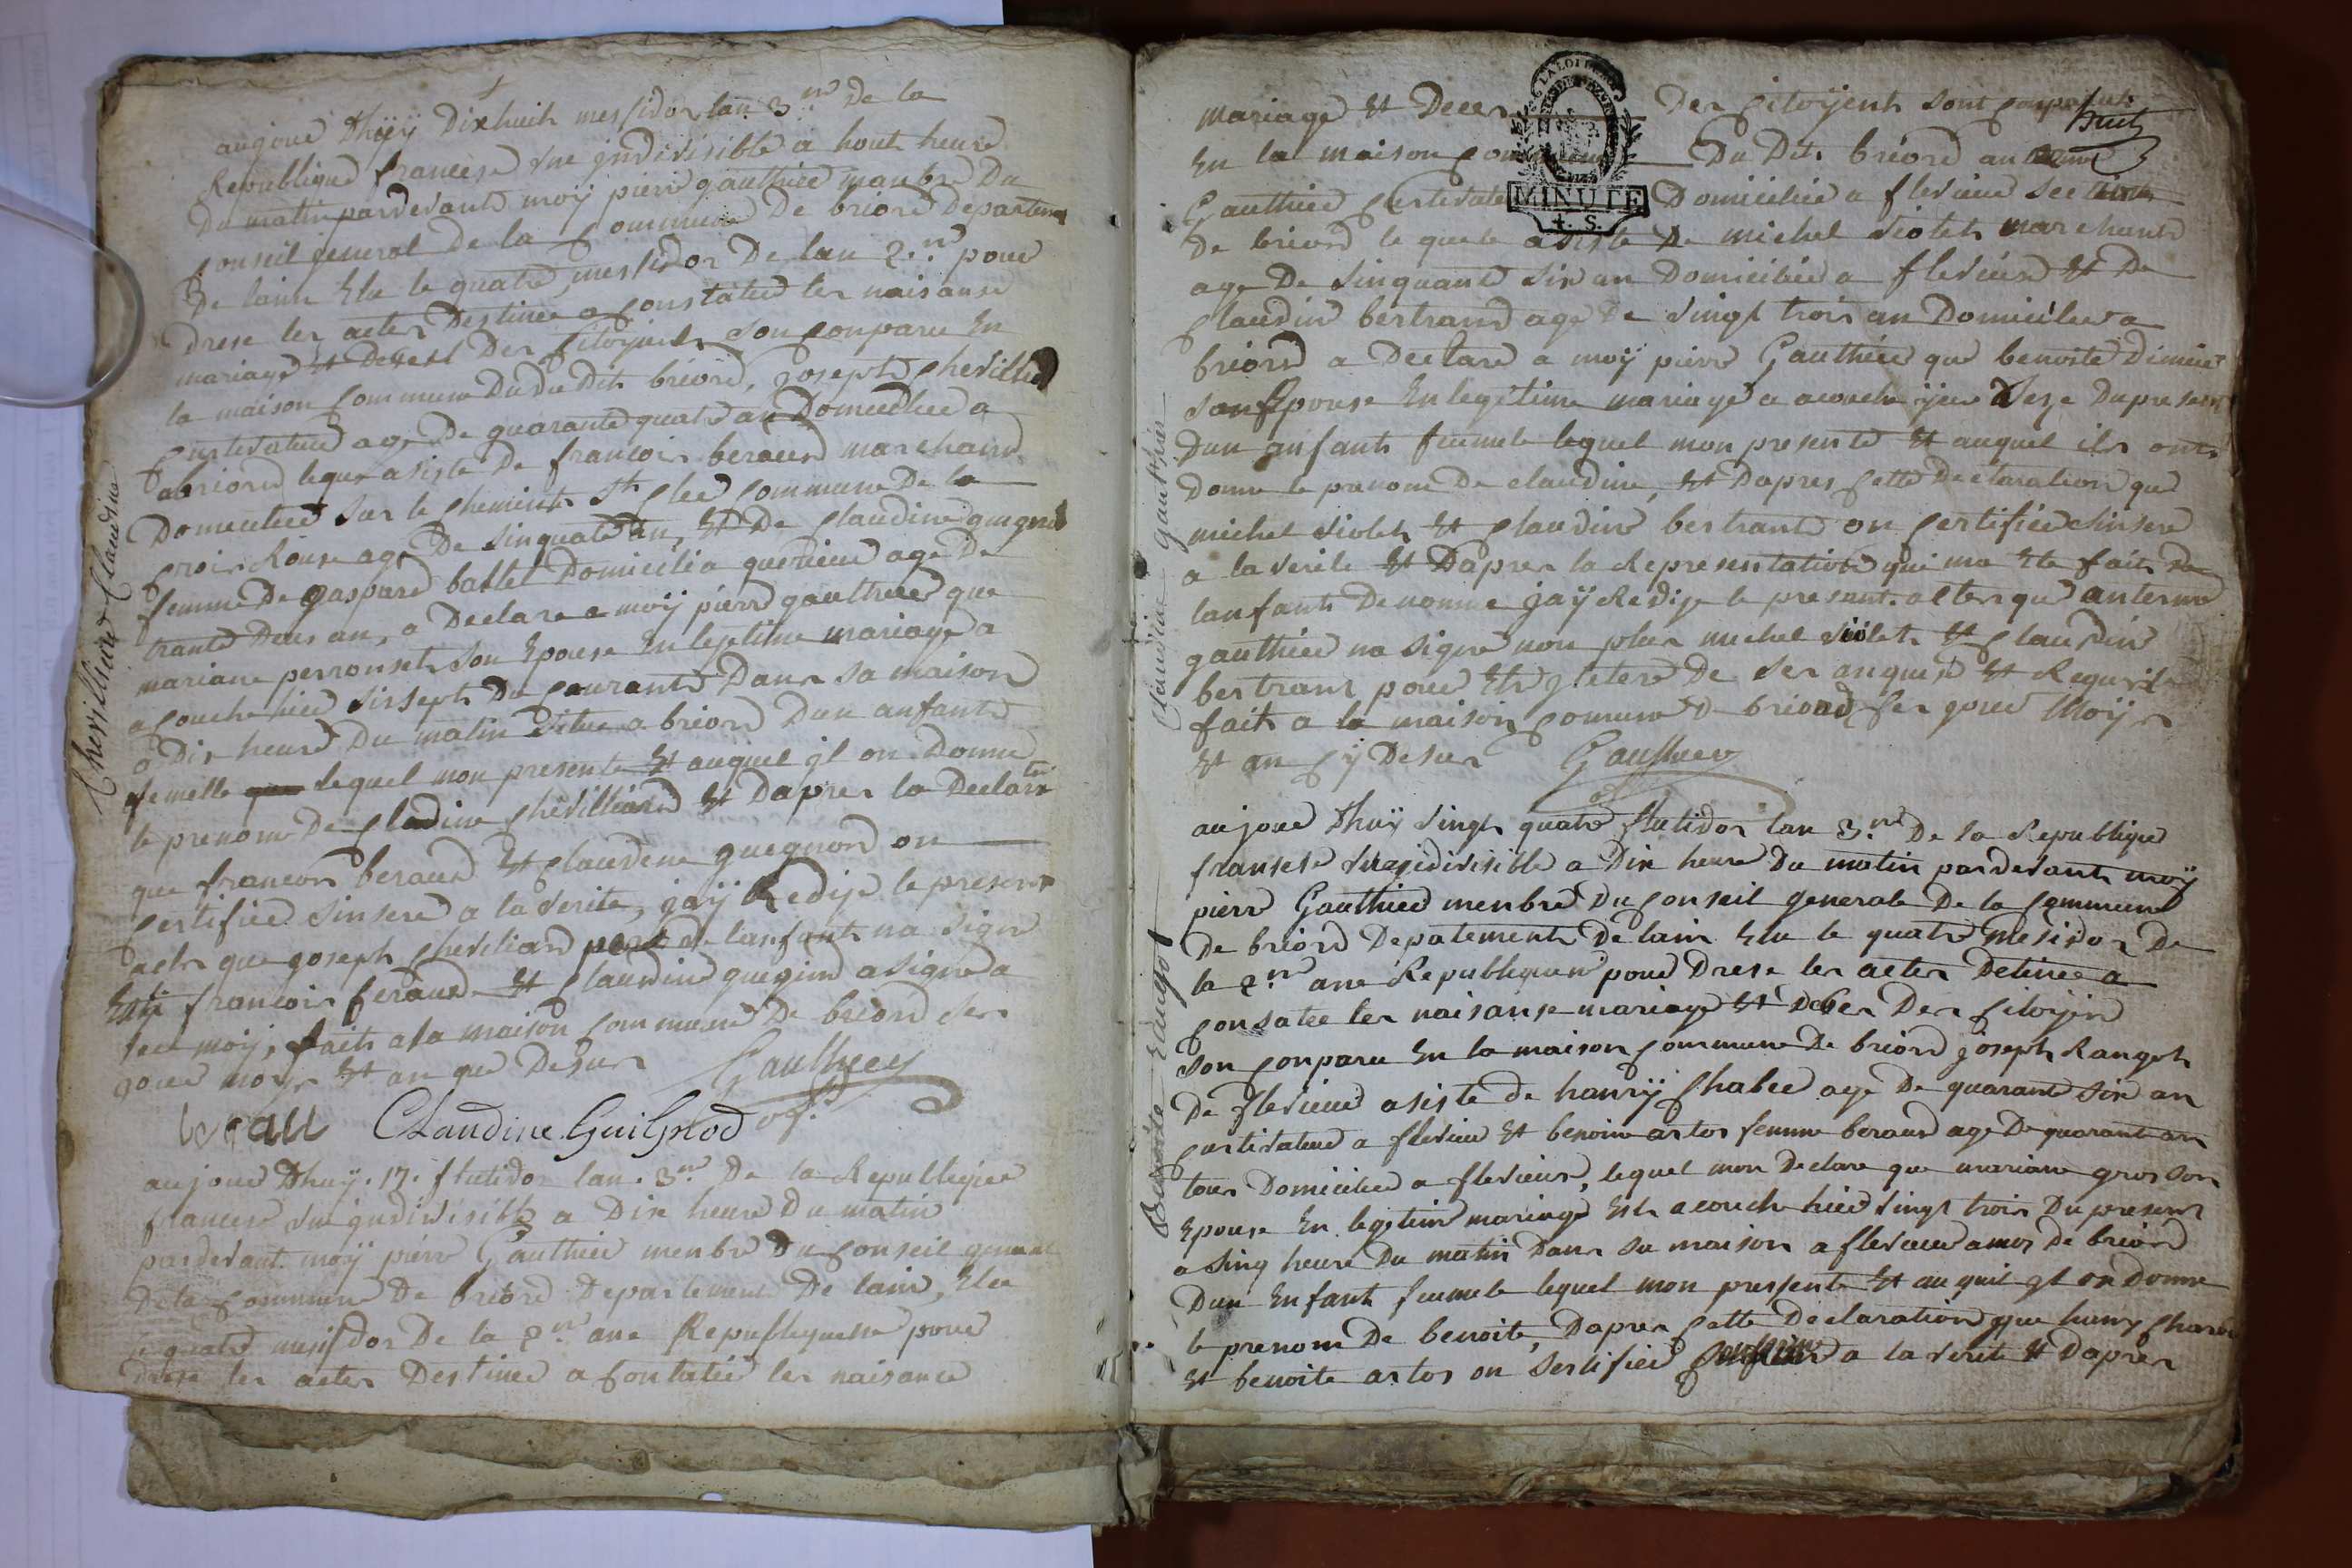 Chevilliard Claudine
aujour Dhuÿ Dixhuit messidor lan 3.me De la
Republique francese une jndivisible a hout heure
Du matin pardevant moÿ pierre gauthier manbre Du
Conseil general de la Commune De briord Departem
De lainn Elu le quatre messidor De lan 2.me pour
Drese les actes Destinee a Constatee les naisanse
mariage Et Deces Des Citoÿents son Conparu En
la maison Commune Du Dit briord, joseph Chevillia
Curtivateur age De quarante quatre an Domicilier a
abriord leque asiste De francois beraud marchand
Domicilier sur le Chemint St Clee Commune De la
Croix Rouse age De sinquate an, Et De Claudine guegnid
femme De gaspard ballet Domicili a querieu age De
trante Deus an, a Declare a moÿ pierre gauthier que
mariane perronset son Epouse En legitime mariage a
acouche hier dissept Du Courant Dans sa maison
a Dix heure Du matin situe a briord Dun anfant
femelle lequel mon presente Et auquel jl on Donne
le prenom De Cladine Chevilliard Et Dapres la Declara
que francois beraud Et Claudene guegnon on
Certifier sinsere a la verite, jaÿ Redije le presant
acte que joseph Chevliard pere de lanfant na signe
francois feraud Et Claudine guegind a signe a
moÿ, fait ala maison Commune De briord ses
jour mois Et an que Desus Gauthier
Claudine GuiGnod of.
aujour Dhuÿ. 17. frutidor lan. 3.me De la Republique
francese une jndivisible a Dix heure Du matin
pardevant moÿ pierre Gauthier menbre Du Conseil general
De la Commune De briord Departement De lain, Elu
le quatre mesidor De la 2.me ane Republiquene pour
Drese les actes Destinee a Contatée les naisance
huit
LA LOI
MINUTE
+. S.
mariage Et Deces Des Citoÿent sont Conparut
En la maison Commune Du Dit briord
Gauthier Curtivateur Domicilier a flevieu section
De briord le quele asiste De michel violet marchand
age De sinquant six an Domicilier a flevieu Et De
Claudin bertrand age De vingt trois an Domicilier a
briord a Declare a moÿ pierre Gauthier que benoite Dimier
son Epouse En legitime mariage a acouche ÿer Seze Dupresant
Dun anfant fumele lequel mon presente Et auquel ils ont
Donne le prenom De claudine, Et Dapres Cette Declaration que
michel violet Et Claudin bertrant on Certifier sinsere
a la verite Et Dapres la Representation qui ma Ete fait De
lanfant Denomme jaÿ Redije le presant.
gauthier na signe non plus michel violet Et Claudin
bertrant pour Etre jletere De ses anquis Et Requis
fait a la maison Comune De briord ses jour Moÿs
Et an Cÿ Desus Gauthier
of
Claudine gautthier
aujour Dhuÿ vingt quatre frutidor lan 3.me De la Republique
fransese une jndivisible a Dix heure Du matin pardevant moÿ
pierre Gauthier menbre Du Conseil generale De la Commune
De briord Depatement De lain Elu le quatre Mesidor De
la 2.me ane Republiquene pour Drese les actes Detinee a
Consatée les naisanse mariage Et Deces Des Citoÿin
son Conparu En la maison Commune De briord joseph Ranget
De flevieu asiste de hanrÿ Chabee age De quarante six an
Curtivateur a flevieu Et benoite artos femme beraud age De quarant an
tous Domicilier a flevieu, lequel mon Declare que mariane gros son
Epouse En legetime mariage Est acouche hier vingt trois Du presant
a sinq heure Du matin Dans sa maison a flevieu De briord
Dun Enfant fumele lequel mon pressente Et auquil jl on Donne
le prenom De benoite, Dapres Cette Declaration que hanrÿ Chabee
Et benoite artos on sertifier a la verite Et Dapres